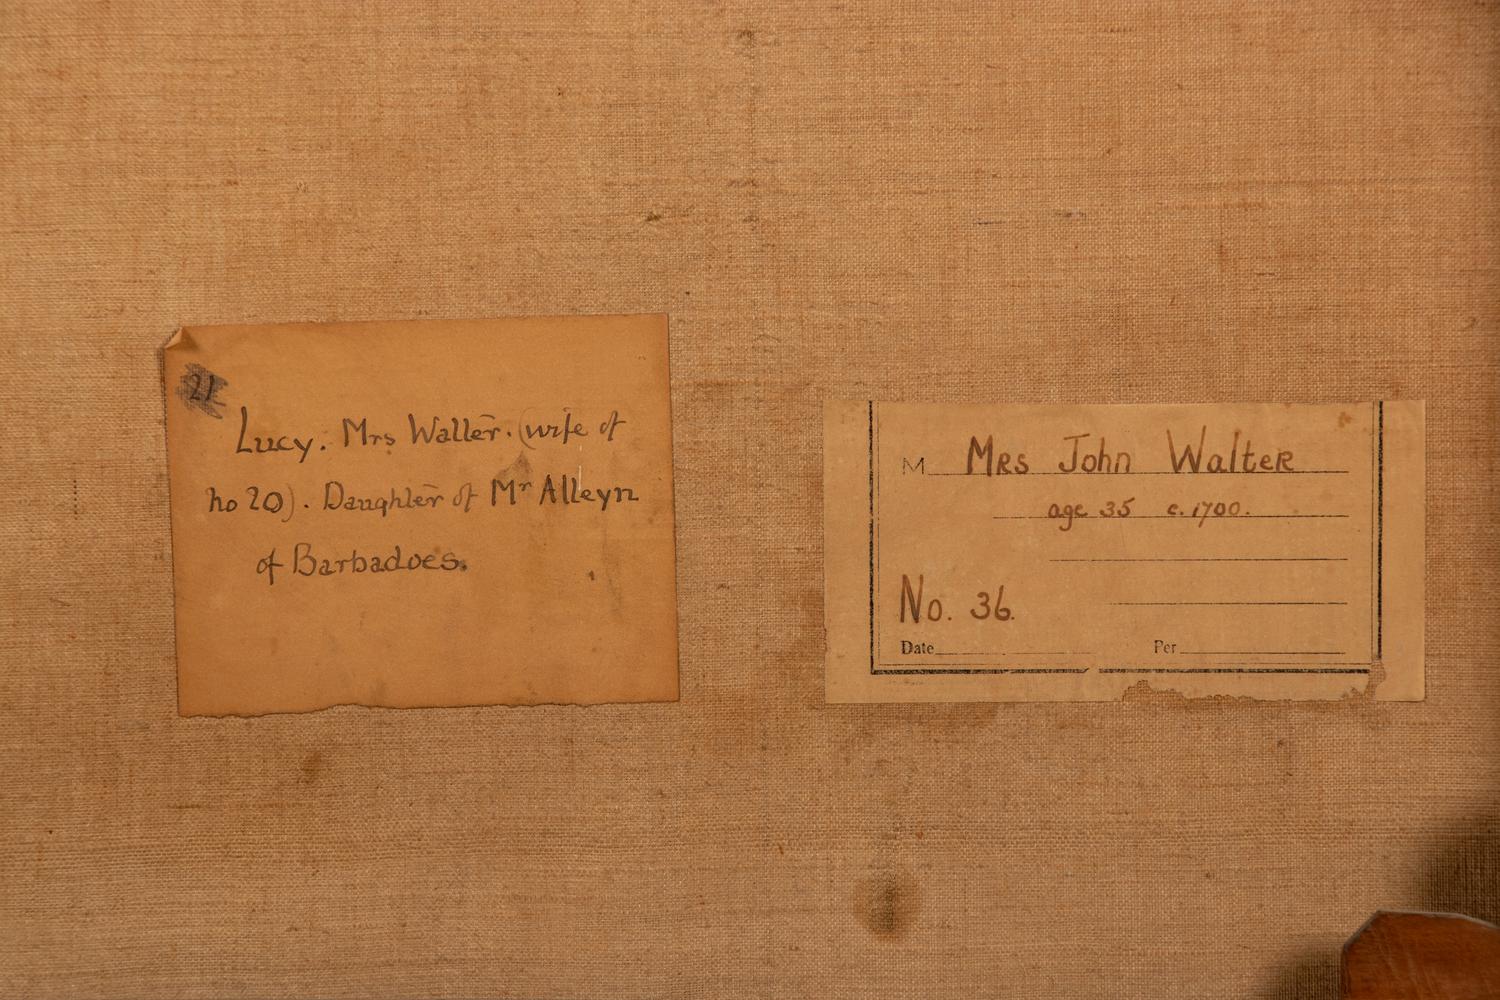 21
Lucy. Mrs Walter. (wife of
no 20). Daughter of Mr Alleyn
of Barbadoes.
M Mrs John Walter
age 35 c. 1700.
No. 36.
Date Per